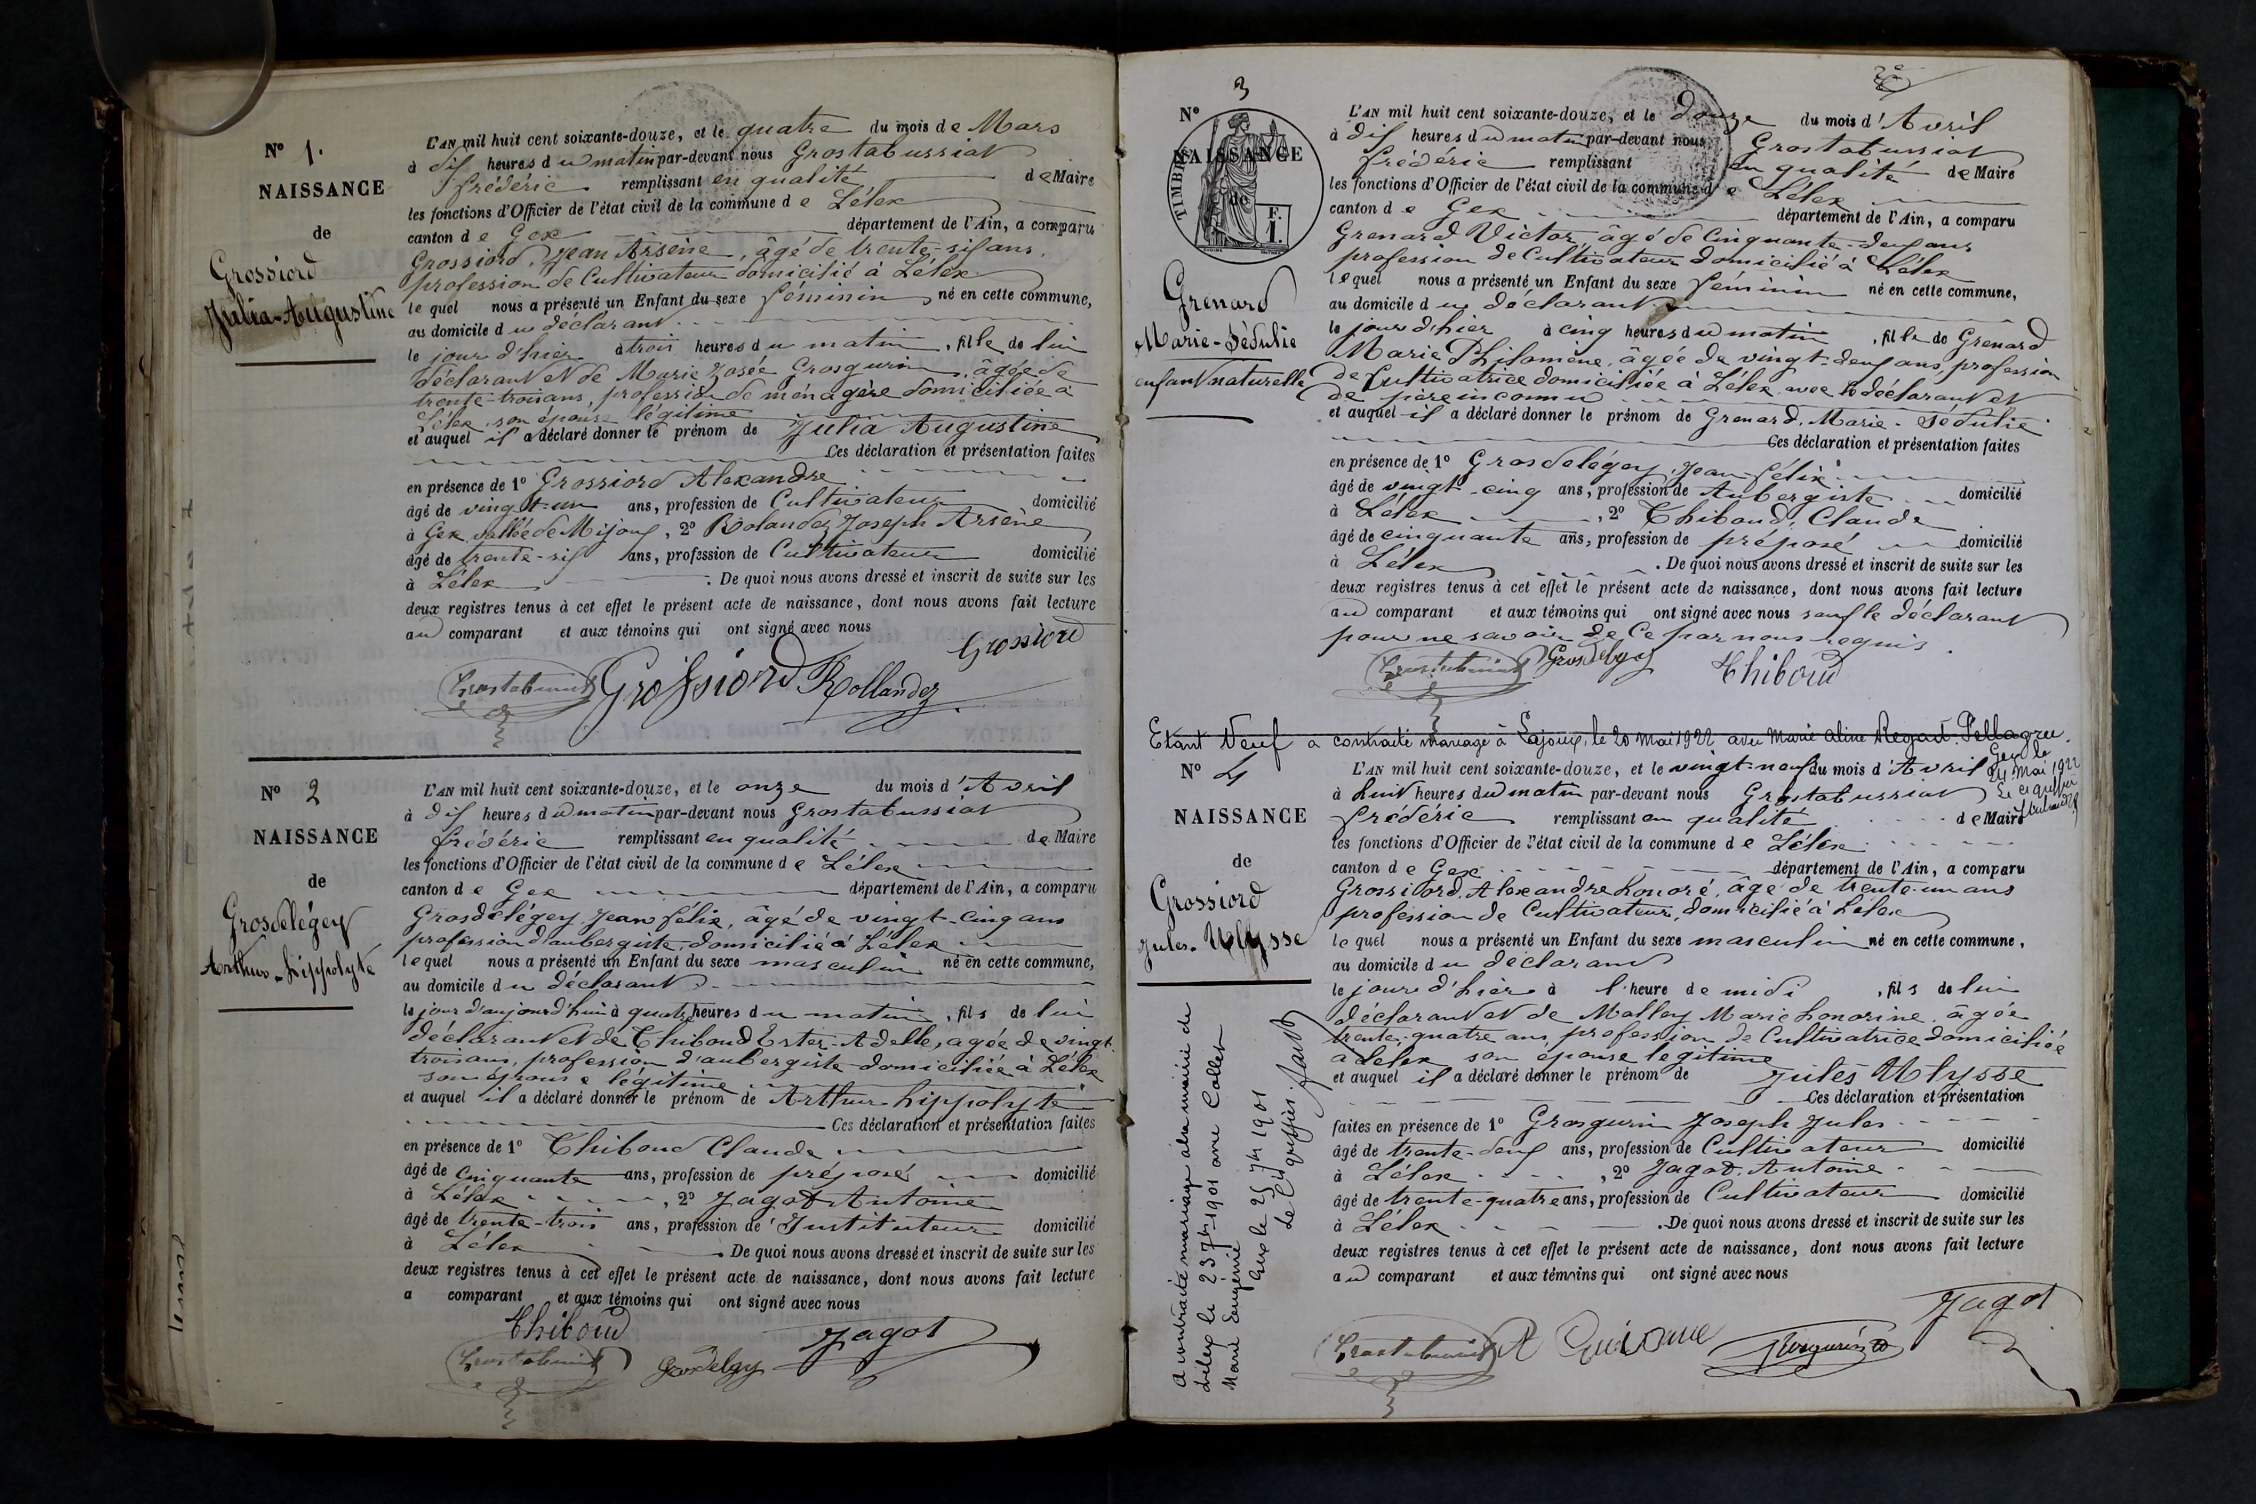 N° 1.
NAISSANCE
de
Grossiord
Julia-Augustine
L'AN mil huit cent soixante-douze, et le quatre du mois de Mars
à dix heures du matin par-devant nous Grostabussiat
frédéric remplissant en qualité de Maire
les fonctions d'Officier de l'état civil de la commune de Lélex
canton de Gex département de l'Ain, a comparu
Grossiord, Jean Arsène, âgé de trente-six ans,
profession de Cultivateur domicilié à Lélex
lequel nous a présenté un Enfant du sexe féminin, né en cette commune,
au domicile du déclarant
le jour d'hier à trois heures du matin, fille de lui
déclarant et de Marie Josée Grosgurin, âgée de
trente-trois ans, profession de ménagère domiciliée à
Lélex, son épouse légitime
et auquel il a déclaré donner le prénom de Julia Augustine
Ces déclaration et présentation faites
en présence de 1° Grossiord Alexandre
âgé de vingt-un ans, profession de Cultivateur domicilié
à Gex vallée de Mijoux, 2° Rolandez Joseph Arsène
âgé de trente-six ans, profession de Cultivateur domicilié
à Lélex. De quoi nous avons dressé et inscrit de suite sur les
deux registres tenus à cet effet le présent acte de naissance, dont nous avons fait lecture
au comparant et aux témoins qui ont signé avec nous
Grossiord
Grostabussiat Grossiord Rollandez
N° 2
NAISSANCE
de
Grosdelégey
Arthur-hippolyte
L'AN mil huit cent soixante-douze, et le onze du mois d'Avril
à dix heures du matin par-devant nous Grostabussiat
frédéric remplissant en qualité de Maire
les fonctions d'Officier de l'état civil de la commune de Lélex
canton de Gex département de l'Ain, a comparu
Grosdelégey Jean félix, âgé de vingt-cinq ans
profession d'aubergiste, domicilié à Lélex
lequel nous a présenté un Enfant du sexe masculin né en cette commune,
au domicile du déclarant
le jour d'aujourd'hui à quatre heures du matin, fils de lui
déclarant et de Thiboud Ester-Adelle, agée de vingt-
trois ans, profession d'aubergiste domiciliée à Lélex
son épouse légitime
et auquel il a déclaré donner le prénom de Arthur hippolyte
Ces déclaration et présentation faites
en présence de 1° Thiboud Claude
âgé de cinquante ans, profession de préposé domicilié
à Lélex, 2° Jagot Antoine
âgé de trente-trois ans, profession de Instituteur domicilié
à Lélex. De quoi nous avons dressé et inscrit de suite sur les
deux registres tenus à cet effet le présent acte de naissance, dont nous avons fait lecture
a comparant et aux témoins qui ont signé avec nous
Thiboud Jagot
Grostabussiat Grosdelgey
N° 3
NAISSANCE
de
TIMBRE
F.
I.
Grenard
Marie-Sédulie
enfant naturelle
L'AN mil huit cent soixante-douze, et le douze du mois d'Avril
à dix heures du matin par-devant nous Grostabussiat
frédéric remplissant en qualité de Maire
les fonctions d'Officier de l'état civil de la commune de Lélex
canton de Gex département de l'Ain, a comparu
Grenard Victor âgé de cinquante-deux ans
profession de Cultivateur domicilié à Lélex
lequel nous a présenté un Enfant du sexe féminin né en cette commune,
au domicile du déclarant
le jour d'hier à cinq heures du matin, fille de Grenard
Marie Philomène, âgée de vingt-deux ans, profession
de Cultivatrice domiciliée à Lélex avec le déclarant et
de père inconnu
et auquel il a déclaré donner le prénom de Grenard, Marie-Sédulie
Ces déclaration et présentation faites
en présence de 1° Grosdelégey, Jean-félix
âgé de vingt-cinq ans, profession de Aubergiste domicilié
à Lélex, 2° Thiboud, Claude
âgé de cinquante ans, profession de préposé domicilié
à Lélex. De quoi nous avons dressé et inscrit de suite sur les
deux registres tenus à cet effet le présent acte de naissance, dont nous avons fait lecture
au comparant et aux témoins qui ont signé avec nous sauf le déclarant
pour ne savoir de ce par nous requis.
Grostabussiat Grosdelgey Thiboud
Etant Veuf a contracté mariage à Lajoux, le 20 mai 1922 avec Marie Aline Regad-Pellagru.
Gex le
24 Mai 1922
Le Cis greffier
N° 4
NAISSANCE
de
Grossiord
Jules-Ulysse
L'AN mil huit cent soixante-douze, et le vingt-neuf du mois d'Avril
à huit heures du matin par-devant nous Grostabussiat
frédéric remplissant en qualité de Maire
les fonctions d'Officier de l'état civil de la commune de Lélex
canton de Gex département de l'Ain, a comparu
Grossiord, Alexandre honoré, âgé de trente-un ans
profession de Cultivateur, domicilié à Lélex
lequel nous a présenté un Enfant du sexe masculin né en cette commune,
au domicile du déclarant
le jour d'hier à l'heure de midi, fils de lui
déclarant et de Molley Marie honorine, âgée
trente-quatre ans, profession de Cultivatrice domiciliée
à Lélex son épouse légitime
et auquel il a déclaré donner le prénom de Jules Ulysse
Ces déclaration et présentation
faites en présence de 1° Grosgurin Joseph Jules
âgé de trente-deux ans, profession de Cultivateur domicilié
à Lélex, 2° Jagot, Antoine
âgé de trente-quatre ans, profession de Cultivateur domicilié
à Lélex. De quoi nous avons dressé et inscrit de suite sur les
deux registres tenus à cet effet le présent acte de naissance, dont nous avons fait lecture
au comparant et aux témoins qui ont signé avec nous
Jagot
Grostabussiat
A contracté mariage à la mairie de
Lélex le 23 7bre 1901 avec Collet
Marie Eugénie
Gex le 25 7bre 1901
Le Cis greffier